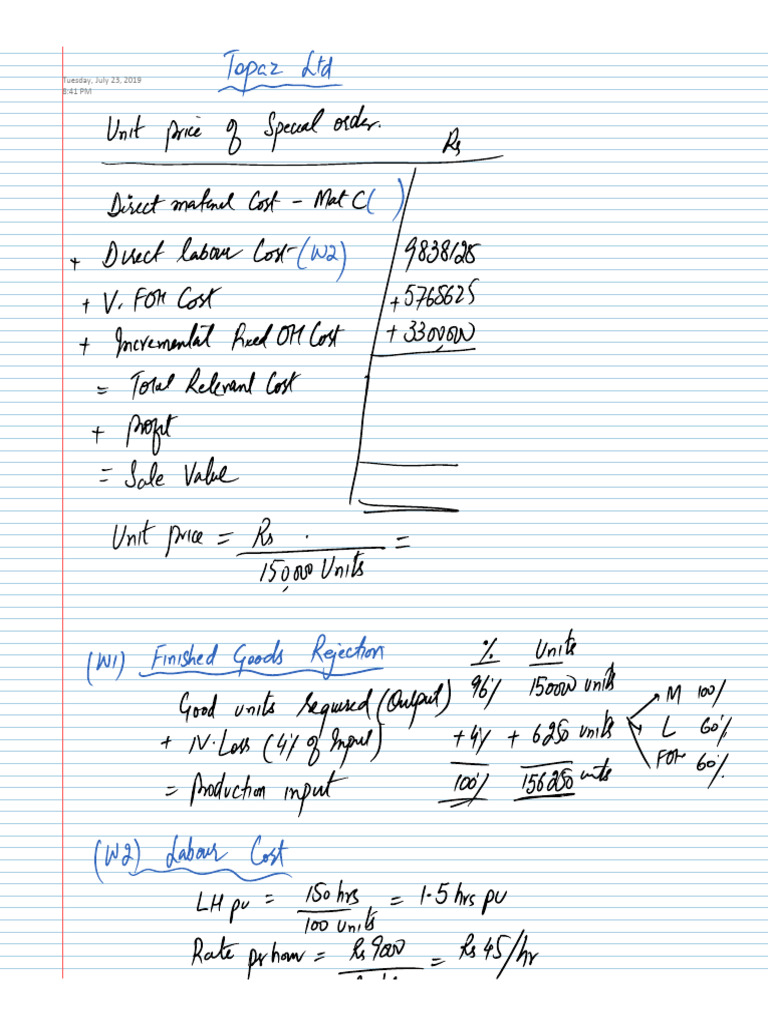 Topaz Ltd
Tuesday, July 23, 2019
8:41 PM
Unit price of Special order.
Rs
Direct material Cost - Mat C ( )
+ Direct labour Cost - (W2) 9838125
+ V. FOH Cost +5765625
+ Incremental Fixed OH Cost + 33,00,000
= Total Relevant Cost
+ Profit
= Sale Value
Unit price = Rs . =
150,000 Units
(W1) Finished Goods Rejection % Units
Good units required (Output) 96% 150000 units
+ N. Loss (4% of Input) +4% + 6250 units
= Production input 100% 156250 units
M 100%
L 60%
FOH 60%
(W2) Labour Cost
LH pu = 150 hrs = 1.5 hrs pu
100 units
Rate per hour = Rs 9000 = Rs 45/hr